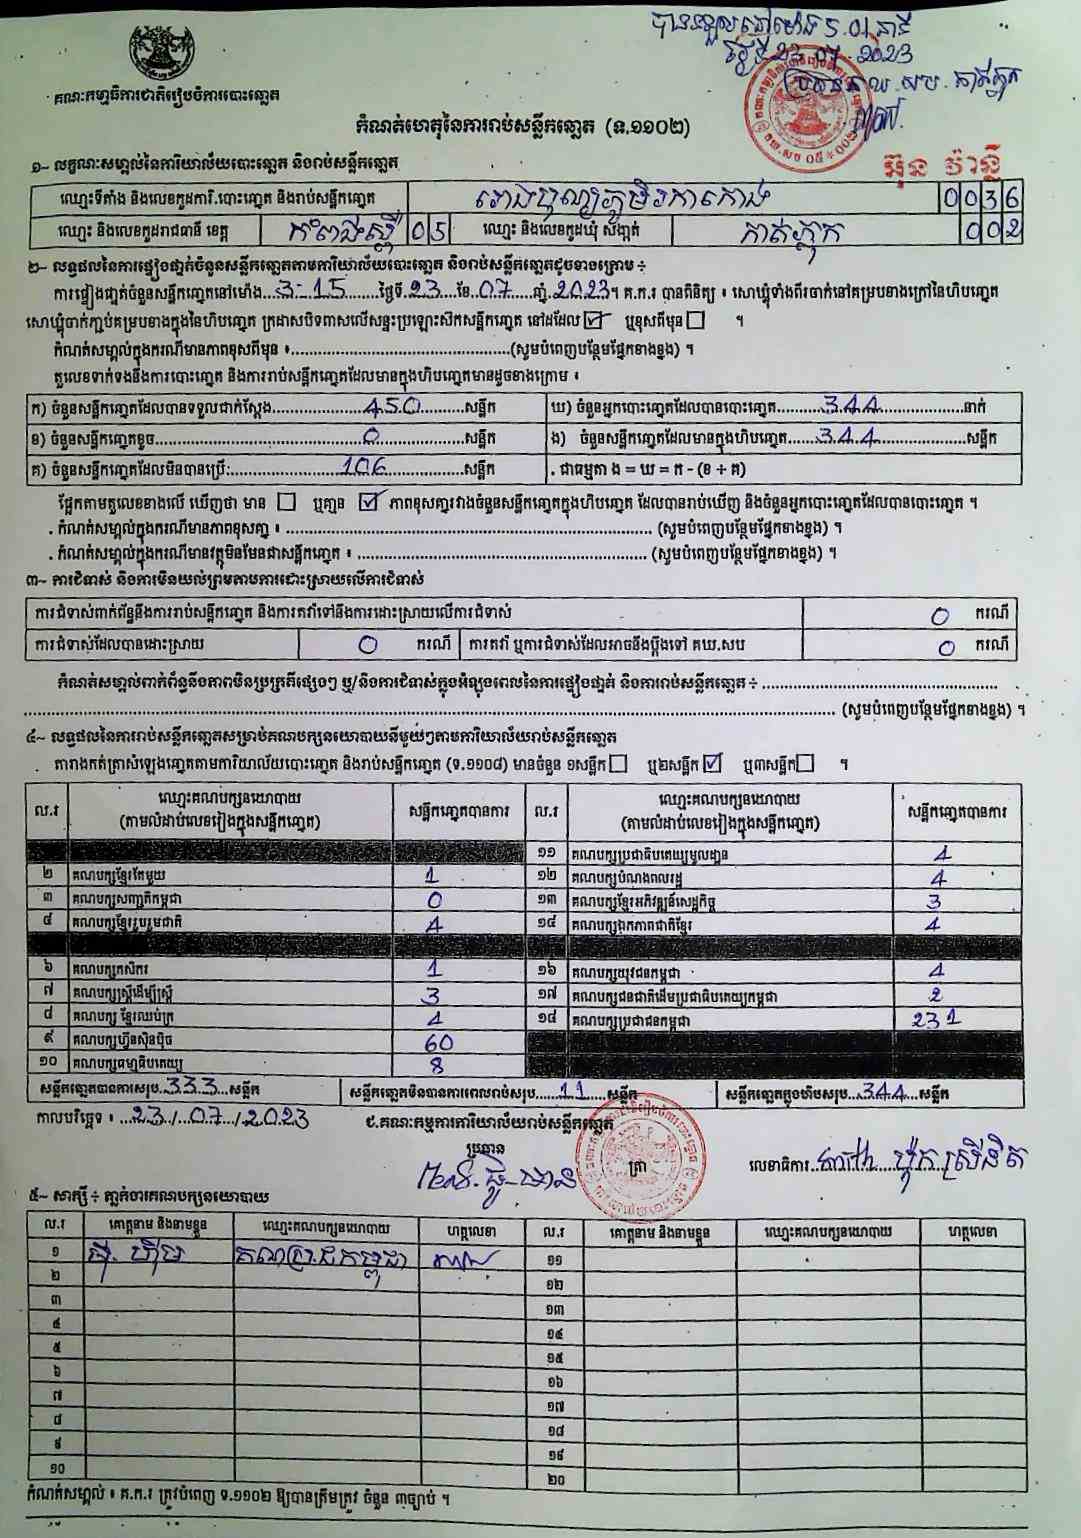 បានទទួលនៅម៉ោង 5.01 នាទី
ថ្ងៃទី 23.07.2023
គណៈកម្មាធិការជាតិរៀបចំការបោះឆ្នោត
កំណត់ហេតុនៃការរាប់សន្លឹកឆ្នោត (ទ.១១០២)
អ៊ុន វ៉ាន្នី
១~ លក្ខណៈសម្គាល់នៃការិយាល័យបោះឆ្នោត និងរាប់សន្លឹកឆ្នោត
ឈ្មោះទីតាំង និងលេខកូដការិ.បោះឆ្នោត និងរាប់សន្លឹកឆ្នោត រោងបុណ្យភូមិរកាកោង 0036
ឈ្មោះ និងលេខកូដរាជធានី ខេត្ត កំពង់ស្ពឺ 05 ឈ្មោះ និងលេខកូដឃុំ សង្កាត់ កាត់ភ្លុក 002
២~ លទ្ធផលនៃការផ្ទៀងផ្ទាត់ចំនួនសន្លឹកឆ្នោតតាមការិយាល័យបោះឆ្នោត និងរាប់សន្លឹកឆ្នោតដូចខាងក្រោម ៖
ការផ្ទៀងផ្ទាត់ចំនួនសន្លឹកឆ្នោតនៅម៉ោង...3-15...ថ្ងៃទី.23...ខែ.07...ឆ្នាំ.2023។ គ.ក.រ បានពិនិត្យ ៖ សោឃ្លុំទាំងពីរចាក់នៅគម្របខាងក្រៅនៃហិបឆ្នោត
សោឃ្លុំចាក់ភ្ជាប់គម្របខាងក្នុងនៃហិបឆ្នោត ក្រដាសបិទពាសលើសន្ទះប្រឡោះសឹកសន្លឹកឆ្នោត នៅដដែល ☑ ឬខុសពីមុន ☐ ។
កំណត់សម្គាល់ក្នុងករណីមានភាពខុសពីមុន ៖..........(សូមបំពេញបន្ថែមផ្នែកខាងខ្នង) ។
តួលេខទាក់ទងនឹងការបោះឆ្នោត និងការរាប់សន្លឹកឆ្នោតដែលមានក្នុងហិបឆ្នោតមានដូចខាងក្រោម ៖
ក) ចំនួនសន្លឹកឆ្នោតដែលបានទទួលជាក់ស្តែង...450...សន្លឹក ឃ) ចំនួនអ្នកបោះឆ្នោតដែលបានបោះឆ្នោត...344...នាក់
ខ) ចំនួនសន្លឹកឆ្នោតខូច...0...សន្លឹក ង) ចំនួនសន្លឹកឆ្នោតដែលមានក្នុងហិបឆ្នោត...344...សន្លឹក
គ) ចំនួនសន្លឹកឆ្នោតដែលមិនបានប្រើ...106...សន្លឹក . ជាធម្មតា ង = ឃ = ក - (ខ + គ)
ផ្អែកតាមតួលេខខាងលើ ឃើញថា មាន ☐ ឬគ្មាន ☑ ភាពខុសគ្នារវាងចំនួនសន្លឹកឆ្នោតក្នុងហិបឆ្នោត ដែលបានរាប់ឃើញ និងចំនួនអ្នកបោះឆ្នោតដែលបានបោះឆ្នោត ។
. កំណត់សម្គាល់ក្នុងករណីមានភាពខុសគ្នា ៖ .......... (សូមបំពេញបន្ថែមផ្នែកខាងខ្នង) ។
. កំណត់សម្គាល់ក្នុងករណីមានវត្ថុមិនមែនជាសន្លឹកឆ្នោត ៖ .......... (សូមបំពេញបន្ថែមផ្នែកខាងខ្នង) ។
៣~ ការជំទាស់ និងការមិនយល់ព្រមតាមការដោះស្រាយលើការជំទាស់
ការជំទាស់ពាក់ព័ន្ធនឹងការរាប់សន្លឹកឆ្នោត និងការតវ៉ាទៅនឹងការដោះស្រាយលើការជំទាស់ 0 ករណី
ការជំទាស់ដែលបានដោះស្រាយ 0 ករណី ការតវ៉ា ឬការជំទាស់ដែលអាចនឹងប្តឹងទៅ គឃ.សប 0 ករណី
កំណត់សម្គាល់ពាក់ព័ន្ធនឹងភាពមិនប្រក្រតីផ្សេងៗ ឬ/និងការជំទាស់ក្នុងអំឡុងពេលនៃការផ្ទៀងផ្ទាត់ និងការរាប់សន្លឹកឆ្នោត ៖ ..........
.......... (សូមបំពេញបន្ថែមផ្នែកខាងខ្នង) ។
៤~ លទ្ធផលនៃការរាប់សន្លឹកឆ្នោតសម្រាប់គណបក្សនយោបាយនីមួយៗតាមការិយាល័យរាប់សន្លឹកឆ្នោត
តារាងកត់ត្រាសំឡេងឆ្នោតតាមការិយាល័យបោះឆ្នោត និងរាប់សន្លឹកឆ្នោត (ទ.១១០៨) មានចំនួន ១សន្លឹក ☐ ឬ២សន្លឹក ☑ ឬ៣សន្លឹក ☐ ។
ល.រ ឈ្មោះគណបក្សនយោបាយ (តាមលំដាប់លេខរៀងក្នុងសន្លឹកឆ្នោត) សន្លឹកឆ្នោតបានការ ល.រ ឈ្មោះគណបក្សនយោបាយ (តាមលំដាប់លេខរៀងក្នុងសន្លឹកឆ្នោត) សន្លឹកឆ្នោតបានការ
១១ គណបក្សប្រជាធិបតេយ្យមូលដ្ឋាន 4
២ គណបក្សខ្មែរតែមួយ 1 ១២ គណបក្សបំណងពលរដ្ឋ 4
៣ គណបក្សសញ្ជាតិកម្ពុជា 0 ១៣ គណបក្សខ្មែរអភិវឌ្ឍន៍សេដ្ឋកិច្ច 3
៤ គណបក្សខ្មែររួបរួមជាតិ 4 ១៤ គណបក្សឯកភាពជាតិខ្មែរ 4
៦ គណបក្សកសិករ 1 ១៦ គណបក្សយុវជនកម្ពុជា 4
៧ គណបក្សស្ត្រីដើម្បីស្ត្រី 3 ១៧ គណបក្សជនជាតិដើមប្រជាធិបតេយ្យកម្ពុជា 2
៨ គណបក្ស ខ្មែរឈប់ក្រ 4 ១៨ គណបក្សប្រជាជនកម្ពុជា 231
៩ គណបក្សហ៊្វុនស៊ិនប៉ិច 60
១០ គណបក្សធម្មាធិបតេយ្យ 8
សន្លឹកឆ្នោតបានការសរុប.333...សន្លឹក សន្លឹកឆ្នោតមិនបានការពេលរាប់សរុប...11...សន្លឹក សន្លឹកឆ្នោតក្នុងហិបសរុប..344...សន្លឹក
កាលបរិច្ឆេទ ៖ ..23../..07../.2023 ជ.គណៈកម្មការការិយាល័យរាប់សន្លឹកឆ្នោត
ប្រធាន
ត្រា
លេខាធិការ ម៉ុក ស្រីនិត
៥~ សាក្សី ៖ ភ្នាក់ងារគណបក្សនយោបាយ
ល.រ គោត្តនាម និងនាមខ្លួន ឈ្មោះគណបក្សនយោបាយ ហត្ថលេខា ល.រ គោត្តនាម និងនាមខ្លួន ឈ្មោះគណបក្សនយោបាយ ហត្ថលេខា
១ ១១
២ ១២
៣ ១៣
៤ ១៤
៥ ១៥
៦ ១៦
៧ ១៧
៨ ១៨
៩ ១៩
១០ ២០
កំណត់សម្គាល់ ៖ គ.ក.រ ត្រូវបំពេញ ទ.១១០២ ឱ្យបានត្រឹមត្រូវ ចំនួន ៣ច្បាប់ ។